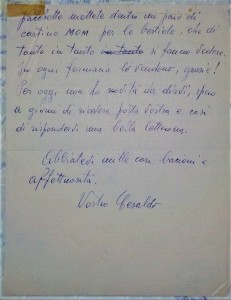 pacchetto mettete dentro un paio di
cartine MOM per le bestiole, che di
tanto in tanto si fanno vedere.
In ogni farmacia lo vendono, grazie!
Per oggi non ho novità da dirvi, spero
a giorni di ricevere posta vostra e così
di rispondervi una bella letterona.
Abbiatevi mille cari bacioni e
affettuosità.
Vostro Geraldo